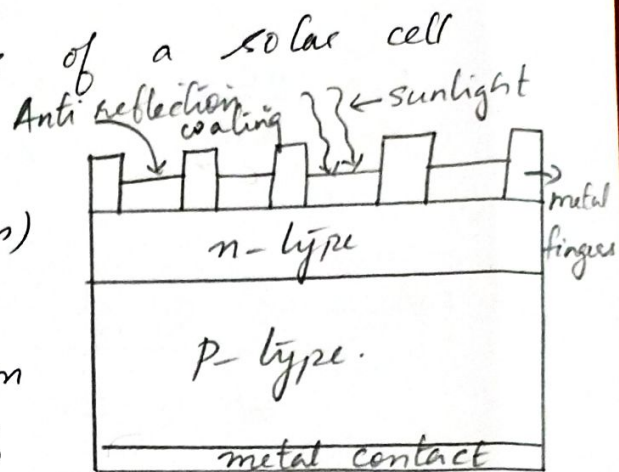 of a solar cell
Anti reflection
coating
sunlight
metal
fingers
n-type
P-type.
metal contact